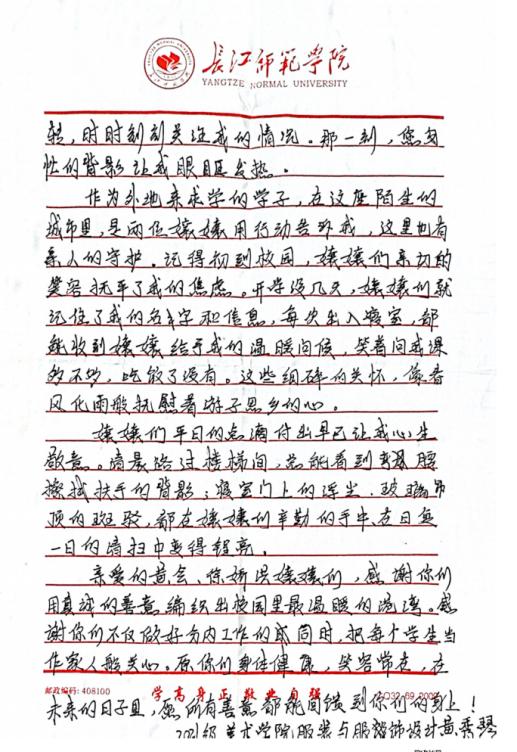 长江师范学院
YANGTZE NORMAL UNIVERSITY
转，时时刻刻关注我的情况。那一刻，您匆
忙的背影让我眼眶发热。
作为外地来求学的学子，在这座陌生的
城市里，是两位嬢嬢用行动告诉我，这里也有
亲人的守护。记得初到校园，嬢嬢们亲切的
笑容抚平了我的焦虑。开学没几天，嬢嬢们就
记住了我的名字和信息，每次出入寝室，都
能收到嬢嬢给予我的温暖问候，笑着问我课
多不多，吃饭了没有。这些细碎的关怀，像春
风化雨般抚慰着游子思乡的心。
嬢嬢们平日的点滴付出早已让我心生
敬意。清晨路过楼梯间，总能看到弯腰
擦拭扶手的背影；寝室门上的浮尘、玻璃吊
顶的斑驳，都在嬢嬢们辛勤的手中、在日复
一日的清扫中变得锃亮。
亲爱的黄会、徐娇洪嬢嬢们，感谢你们
用真诚的善意编织出校园里最温暖的涟漪。感
谢你们不仅做好分内工作的同时，把每个学生当
作家人般关心。愿你们身体健康，笑容常在，在
邮政编码：408100 学高身正 敬业自强
未来的日子里，愿所有善意都能回馈到你们的身上！
21级美术学院服装与服饰设计黄秀琴